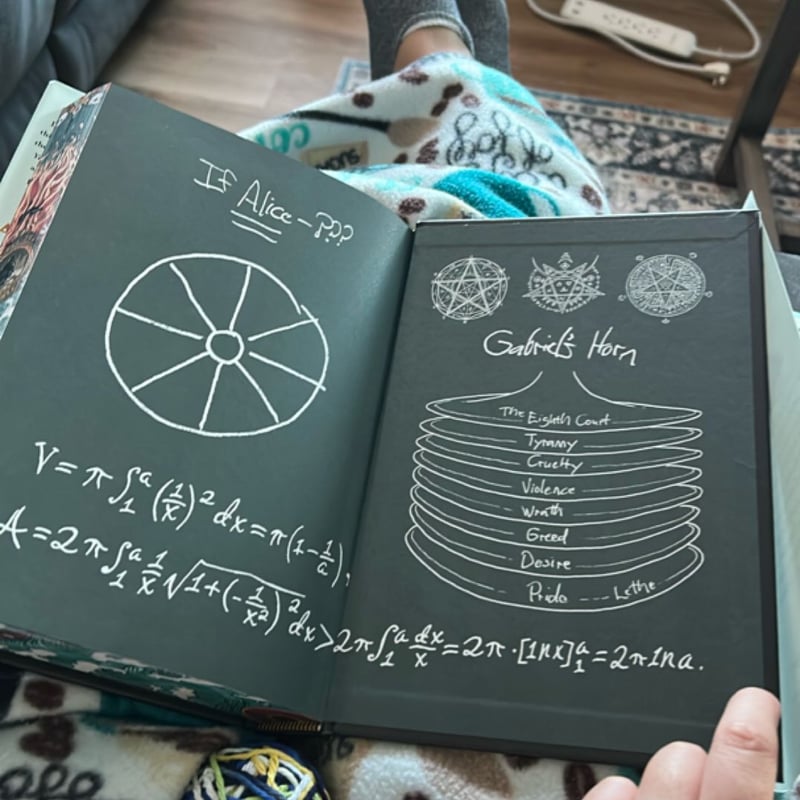 If Alice - ???
V = π ∫₁ᵃ (1/x)² dx = π(1 - 1/a),
A = 2π ∫₁ᵃ 1/x √(1 + (-1/x²)²) dx > 2π ∫₁ᵃ dx/x = 2π · [ln x]₁ᵃ = 2π ln a.
Gabriel's Horn
The Eighth Court
Tyranny
Cruelty
Violence
Wrath
Greed
Desire
Pride --- Lethe